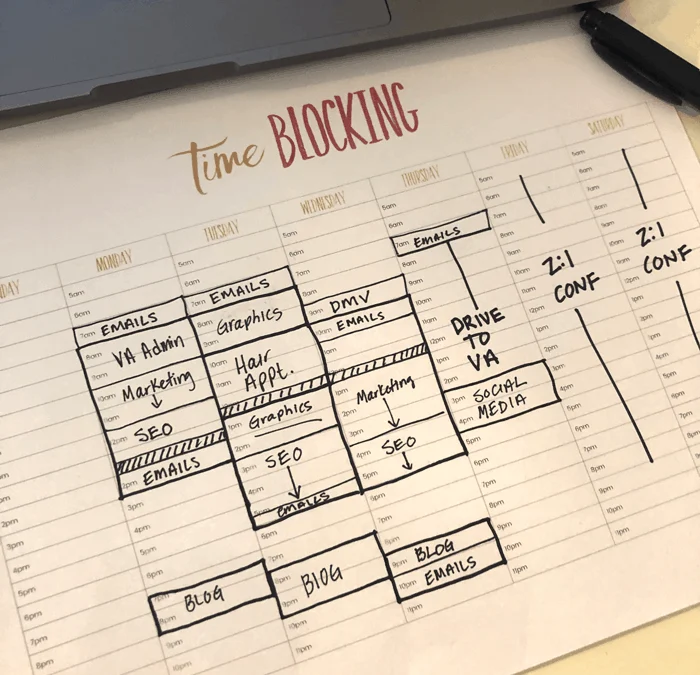 Time BLOCKING
DAY
2pm
3pm
4pm
5pm
6pm
7pm
8pm
MONDAY
5am
6am
7am EMAILS
8am VA Admin
9am
10am Marketing
SEO
EMAILS
3pm
4pm
5pm
6pm
BLOG
9pm
10pm
TUESDAY
5am
6am
7am EMAILS
8am Graphics
Hair
Appt.
1pm Graphics
2pm
3pm SEO
4pm
5pm EMAILS
6pm
7pm
BLOG
WEDNESDAY
5am
6am
7am
DMV
EMAILS
Marketing
4pm SEO
5pm
6pm
BLOG
10pm EMAILS
11pm
THURSDAY
5am
6am
7am EMAILS
8am
9am
10am
11am
12pm
1pm
2pm
DRIVE
TO
VA
3pm SOCIAL
4pm MEDIA
5pm
6pm
7pm
8pm
9pm
10pm
11pm
FRIDAY
5am
6am
7am
8am
9am
10am
11am
12pm
2:1
CONF
1pm
2pm
3pm
4pm
5pm
6pm
7pm
8pm
9pm
10pm
11pm
SATURDAY
5am
6am
7am
8am
9am
10am
11am
12pm
2:1
CONF
1pm
2pm
3pm
4pm
5pm
6pm
7pm
8pm
9pm